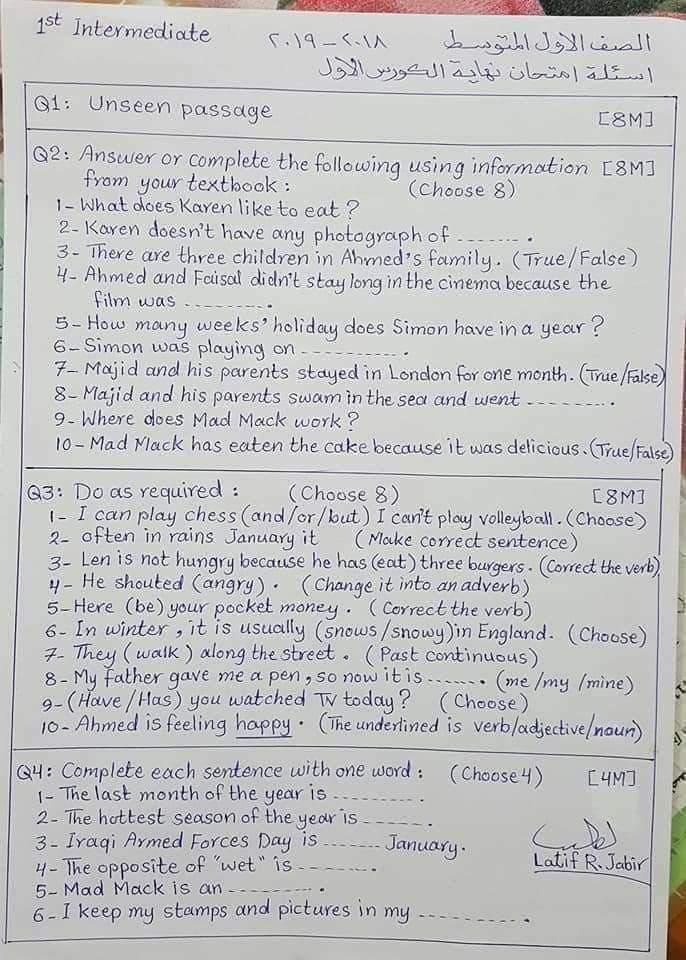 1st Intermediate
٢٠١٨ - ٢٠١٩ الصف الاول المتوسط
اسئلة امتحان نهاية الكورس الاول
Q1: Unseen passage [8M]
Q2: Answer or complete the following using information [8M]
from your textbook: (Choose 8)
1- What does Karen like to eat?
2- Karen doesn't have any photograph of -------.
3- There are three children in Ahmed's family. (True/False)
4- Ahmed and Faisal didn't stay long in the cinema because the
film was ---------.
5- How many weeks' holiday does Simon have in a year?
6- Simon was playing on ----------.
7- Majid and his parents stayed in London for one month. (True/False)
8- Majid and his parents swam in the sea and went ---------.
9- Where does Mad Mack work?
10- Mad Mack has eaten the cake because it was delicious. (True/False)
Q3: Do as required: (Choose 8) [8M]
1- I can play chess (and/or/but) I can't play volleyball. (Choose)
2- often in rains January it (Make correct sentence)
3- Len is not hungry because he has (eat) three burgers. (Correct the verb)
4- He shouted (angry). (Change it into an adverb)
5- Here (be) your pocket money. (Correct the verb)
6- In winter, it is usually (snows/snowy) in England. (Choose)
7- They (walk) along the street. (Past continuous)
8- My father gave me a pen, so now it is -------. (me/my/mine)
9- (Have/Has) you watched TV today? (Choose)
10- Ahmed is feeling happy. (The underlined is verb/adjective/noun)
Q4: Complete each sentence with one word: (Choose 4) [4M]
1- The last month of the year is ---------.
2- The hottest season of the year is -------.
3- Iraqi Armed Forces Day is ------- January.
4- The opposite of "wet" is --------.
5- Mad Mack is an ---------.
6- I keep my stamps and pictures in my ---------.
لطيف
Latif R. Jabir